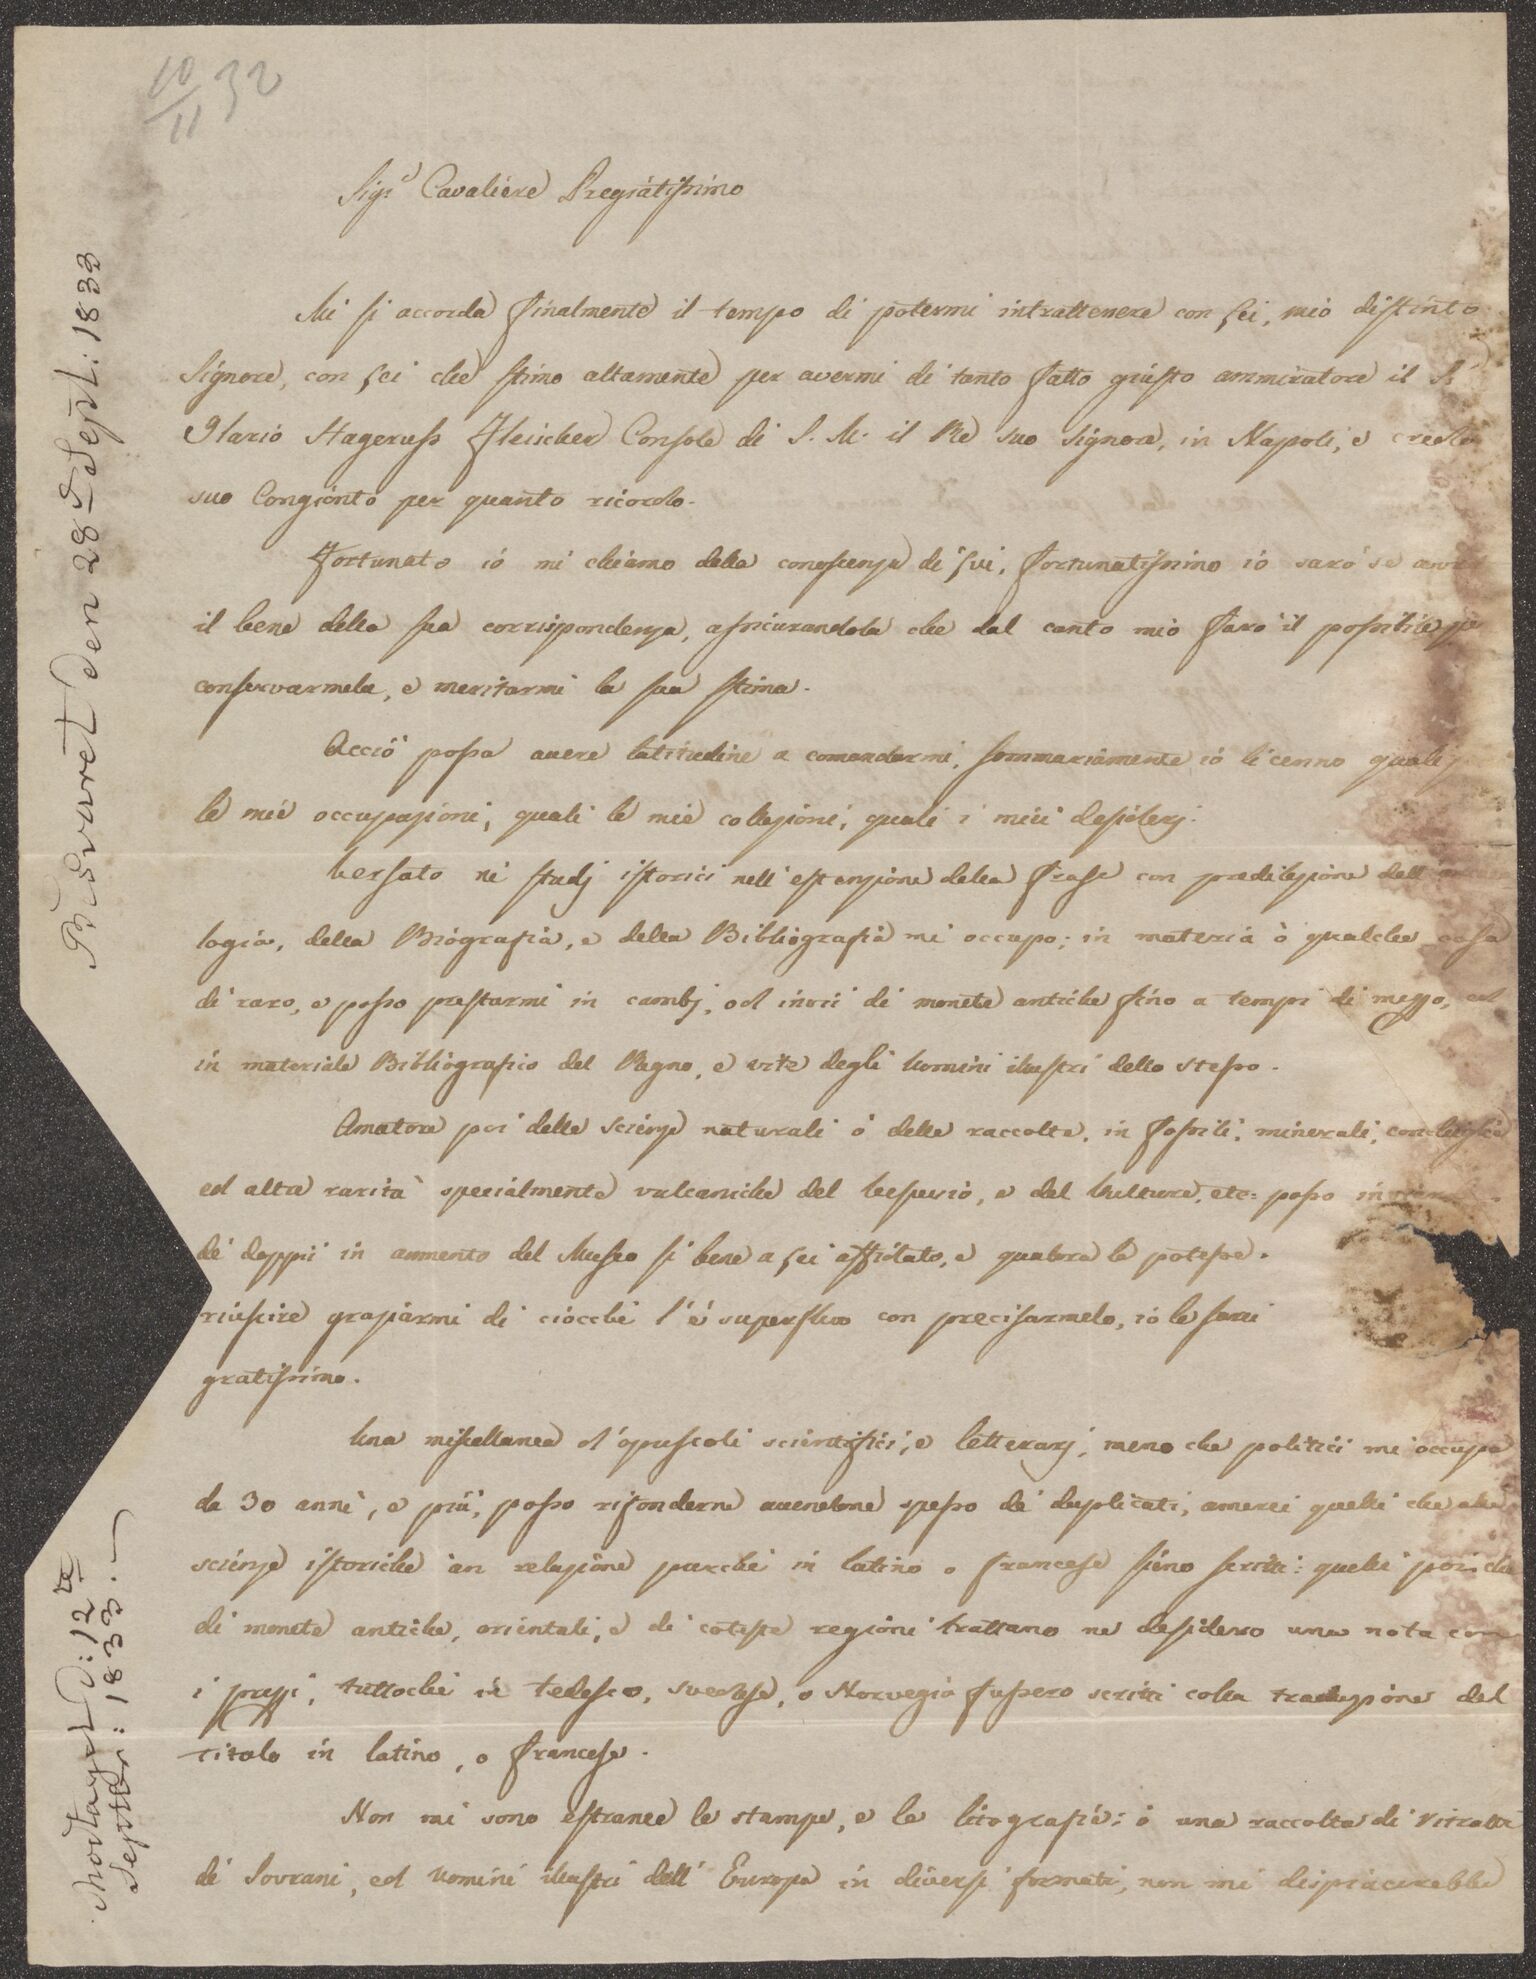 10/11 32
Sigr Cavaliere Pregiatissimo
Mi si accorda finalmente il tempo di potermi intrattenere con Lei, mio distinto
Signore, con Lei che stimo altamente per avermi di tanto fatto giusto ammiratore il Sr
Ilario Hageruss Fleischer Console di S. M. il Re suo Signore, in Napoli, e credo
suo Congionto per quanto ricordo.
Fortunato io mi chiamo della conoscenza di Lui, fortunatissimo io sarò se
il bene della sua corrispondenza, assicurandola che dal canto mio farò il possibile
conservarmela, e meritarmi la sua stima.
Acciò possa avere latitudine a comandarmi, sommariamente io li cenno quali
le mie occupazioni, quali le mie collezioni, quali i miei desiderj.
Versato ne' studj istorici nell'estenzione della frase con predilezione dell'
logia, della Biografia, e della Bibliografia mi occupo; in materia ò qualche cosa
di raro, e posso prestarmi in cambj, od invii di monete antiche fino a tempi di mezzo, ed
in materiale Bibliografico del Regno, e vite degli Uomini illustri dello stesso.
Amatore poi delle scienze naturali ò delle raccolte, in fossili, minerali, conchiglie
ed altre rarità specialmente vulcaniche del Vesuvio, e del Vulture, etc: posso
de' doppii in aumento del Museo sì bene a Lei affidato, e qualora le potesse
riuscire graziarmi di ciocchè l'è superfluo con precisarmelo, io le sarei
gratissimo.
Una miscellanea d'opuscoli scientifici, e letterarj, meno che politici mi occupa
da 30 anni, e più, posso rifonderne avendone spesso de' duplicati, amerei quelli che alle
scienze istoriche àn relazione purchè in latino o francese sieno scritti: quelli poi che
di monete antiche, orientali, e di coteste regioni trattano ne desidero una nota con
i prezzi, tuttochè in tedesco, svedese, o Norvegio fussero scritti colla traduzione del
titolo in latino, o francese.
Non mi sono estranee le stampe, e le litografie: ò una raccolta di ritratti
de' Sovrani, ed uomini illustri dell'Europa in diversi formati, non mi dispiacerebbe
Besvaret den 28d Sept: 1833
Modtaget d: 12te
Septbr: 1833.